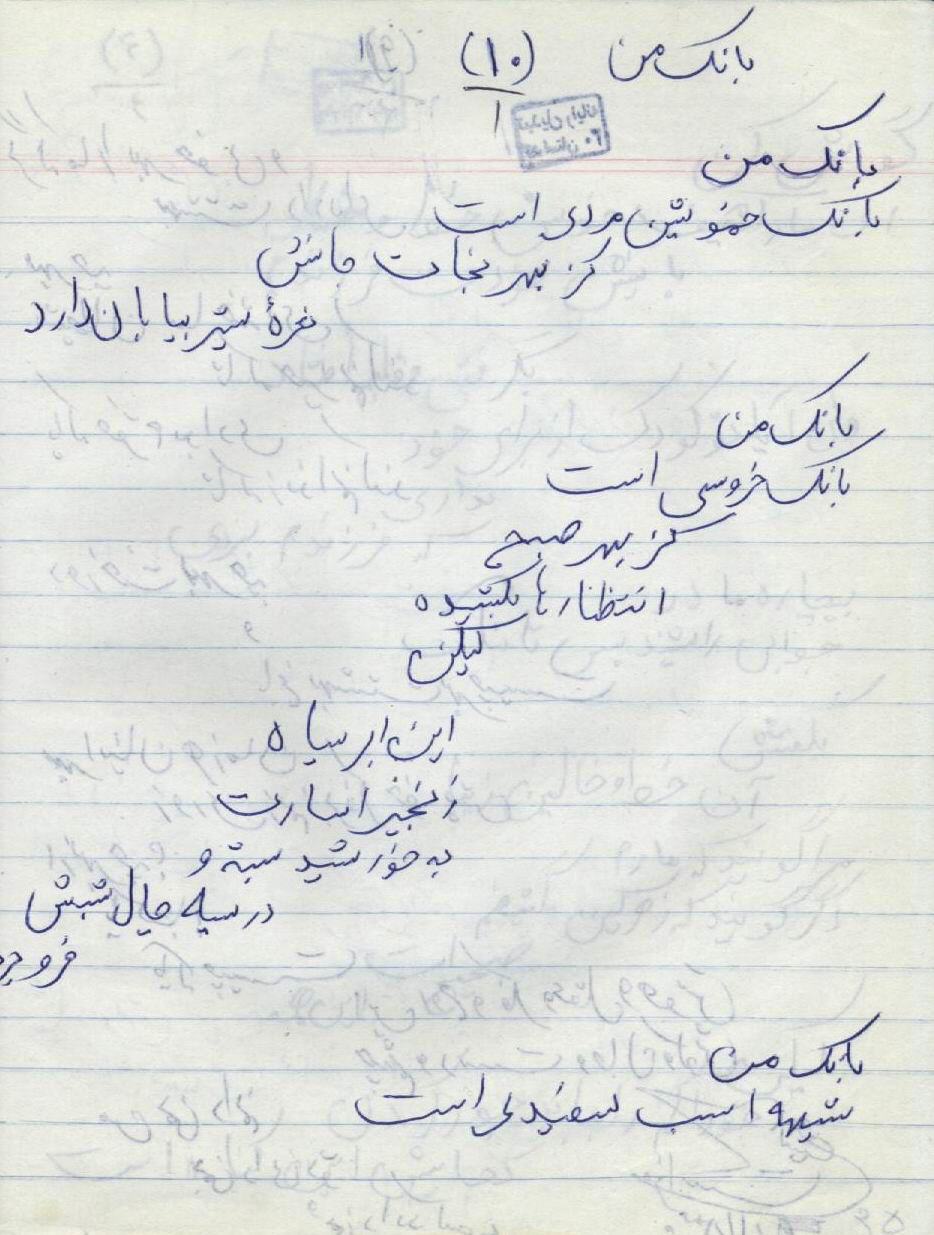 بانگ من (۱۰)
۱
بانگ من
بانگ خونین مردی است
کز بهر نجات جانش
نعرهٔ شیر بیابان دارد
بانگ من
بانگ خروسی است
کز بهر صبح
انتظارها بکشیده
لیکن
این ابر سیاه
زنجیر اسارت
به خورشید بسته و
در سیه چال شبش
فرو
بانگ من
شیهه اسب سفیدی است